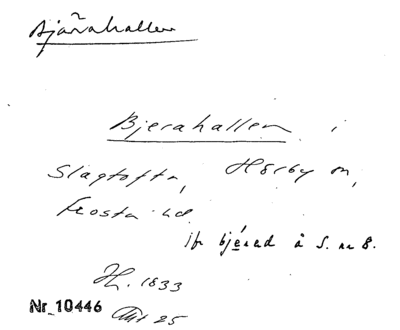 Bjärahallen
Bjerahallen i
Slagtofta, Hörby sn,
Frosta hd.
jfr bjerad å S. nr 8.
H. 1833
Nr 10446
25